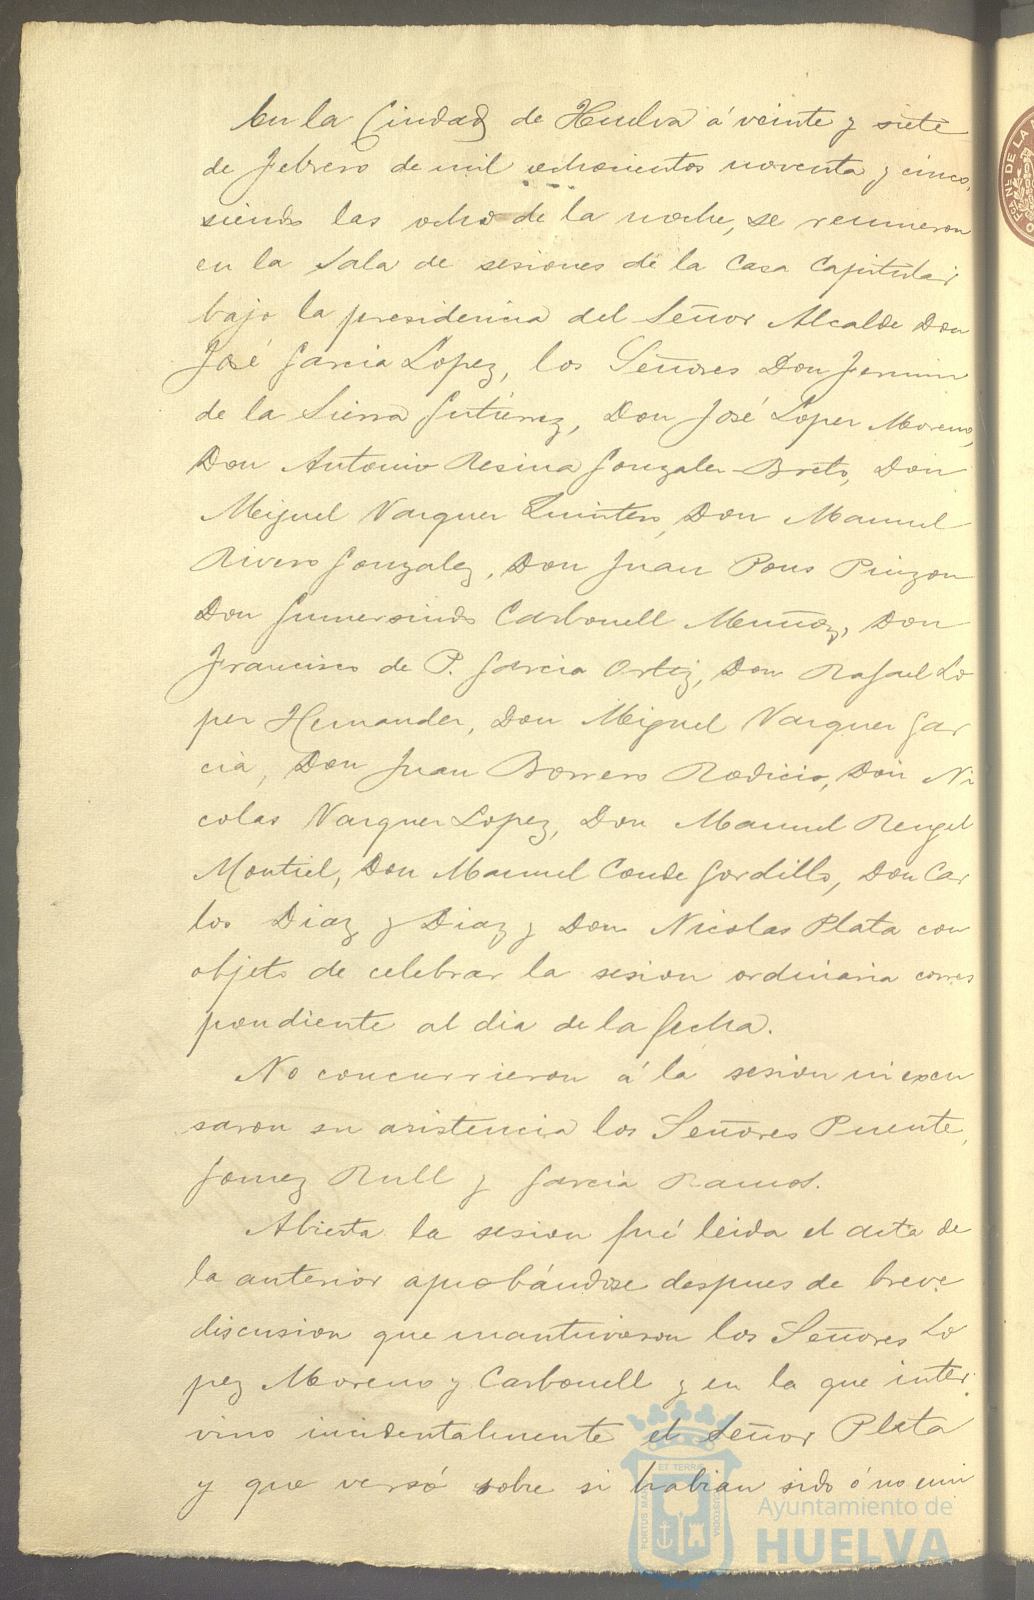 En la Ciudad de Huelva á veinte y siete
de Febrero de mil ochocientos noventa y cinco,
siendo las ocho de la noche, se reunieron
en la Sala de sesiones de la Casa Capitular
bajo la presidencia del Señor Alcalde Don
José Garcia Lopez, los Señores Don Fermin
de la Sierra Gutiérrez, Don José Lopez Moreno,
Don Antonio Resina Gonzalez Breto, Don
Miguel Vazquez Quintero, Don Manuel
Rivero Gonzalez, Don Juan Pons Pinzon
Don Gumersindo Carbonell Muñoz, Don
Francisco de P. Garcia Ortiz, Don Rafael Lo
pez Hernandez, Don Miguel Vazquez Gar
cia, Don Juan Borrero Rodicio, Don Ni
colas Vazquez Lopez, Don Manuel Rengel
Montiel, Don Manuel Conde Gordillo, Don Car
los Diaz y Diaz y Don Nicolas Plata con
objeto de celebrar la sesion ordinaria corres
pondiente al dia de la fecha.
No concurrieron á la sesion ni excu
saron su asistencia los Señores Puente,
Gomez Rull y Garcia Ramos.
Abierta la sesion fué leida el acta de
la anterior aprobándose despues de breve
discusion que mantuvieron los Señores Lo
pez Moreno y Carbonell y en la que inter
vino incidentalmente el Señor Plata
y que versó sobre si habian sido ó no emi
PORTUS MARIS ET TERRE CUSTODIA
Ayuntamiento de
HUELVA